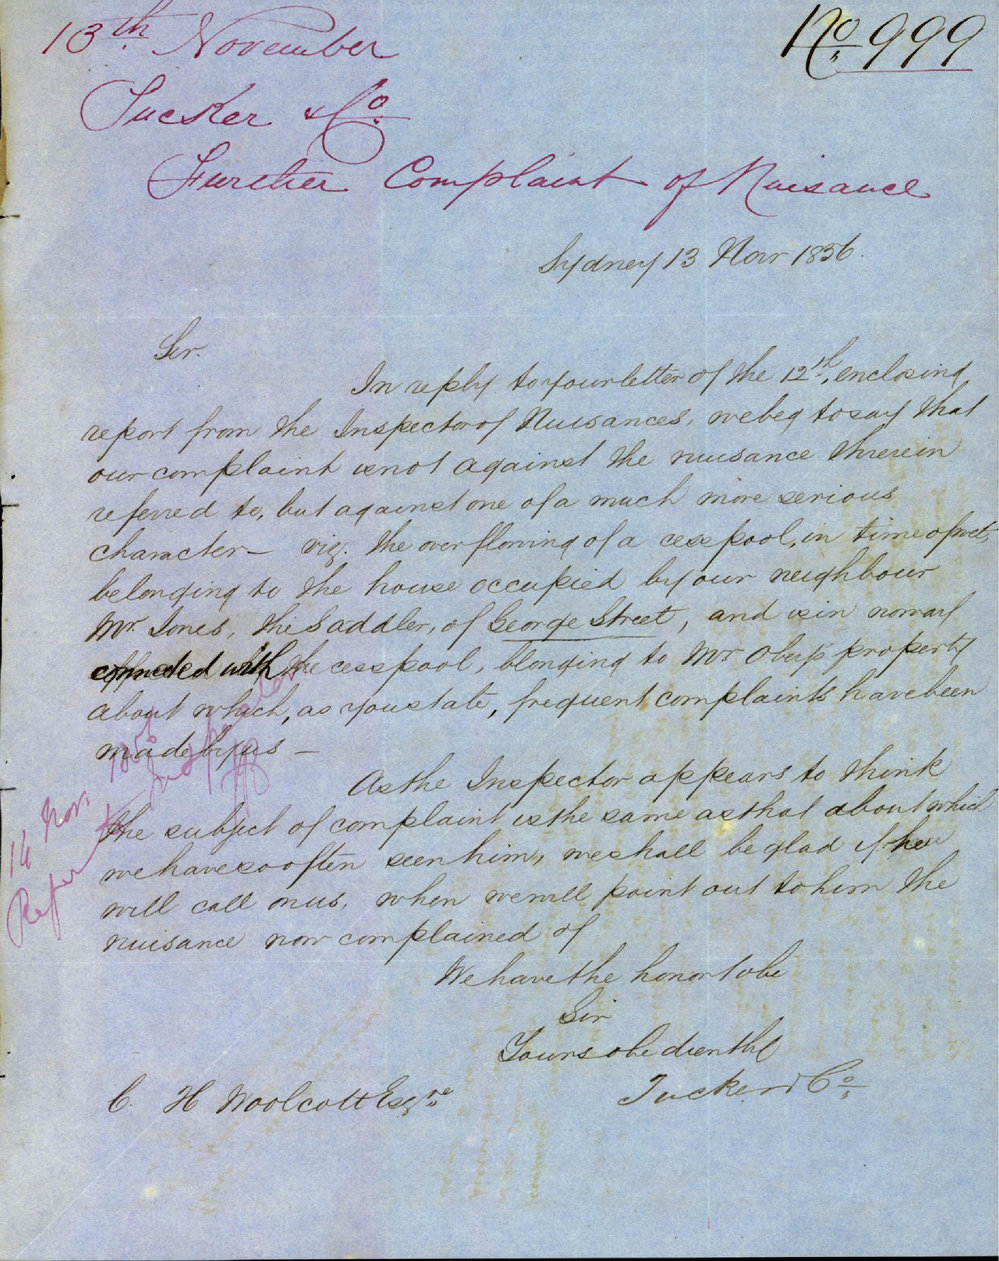 13th November
No 999
Tucker & Co
Further Complaint of Nuisance
Sydney 13 Novr 1856.
Sir.
In reply to your letter of the 12th, enclosing
report from the Inspector of Nuisances, we beg to say that
our complaint is not against the nuisance therein
referred to, but against one of a much more serious
character – viz. the overflowing of a cesspool, in time of wet,
belonging to the house occupied by our neighbour
Mr. Jones, the Saddler, of George Street, and is in no way
connected with the cesspool, blonging to Mr property
about which, as you state, frequent complaints have been
made by us –
As the Inspector appears to think
the subject of complaint is the same as that about which
we have so often seen him, we shall be glad if he
will call on us, when we will point out to him the
nuisance now complained of
We have the honor to be
Sir
Yours obediently
Tucker & Co.
C. H Woolcott Esqre
14 Nov. 1856
Refer to Inspector